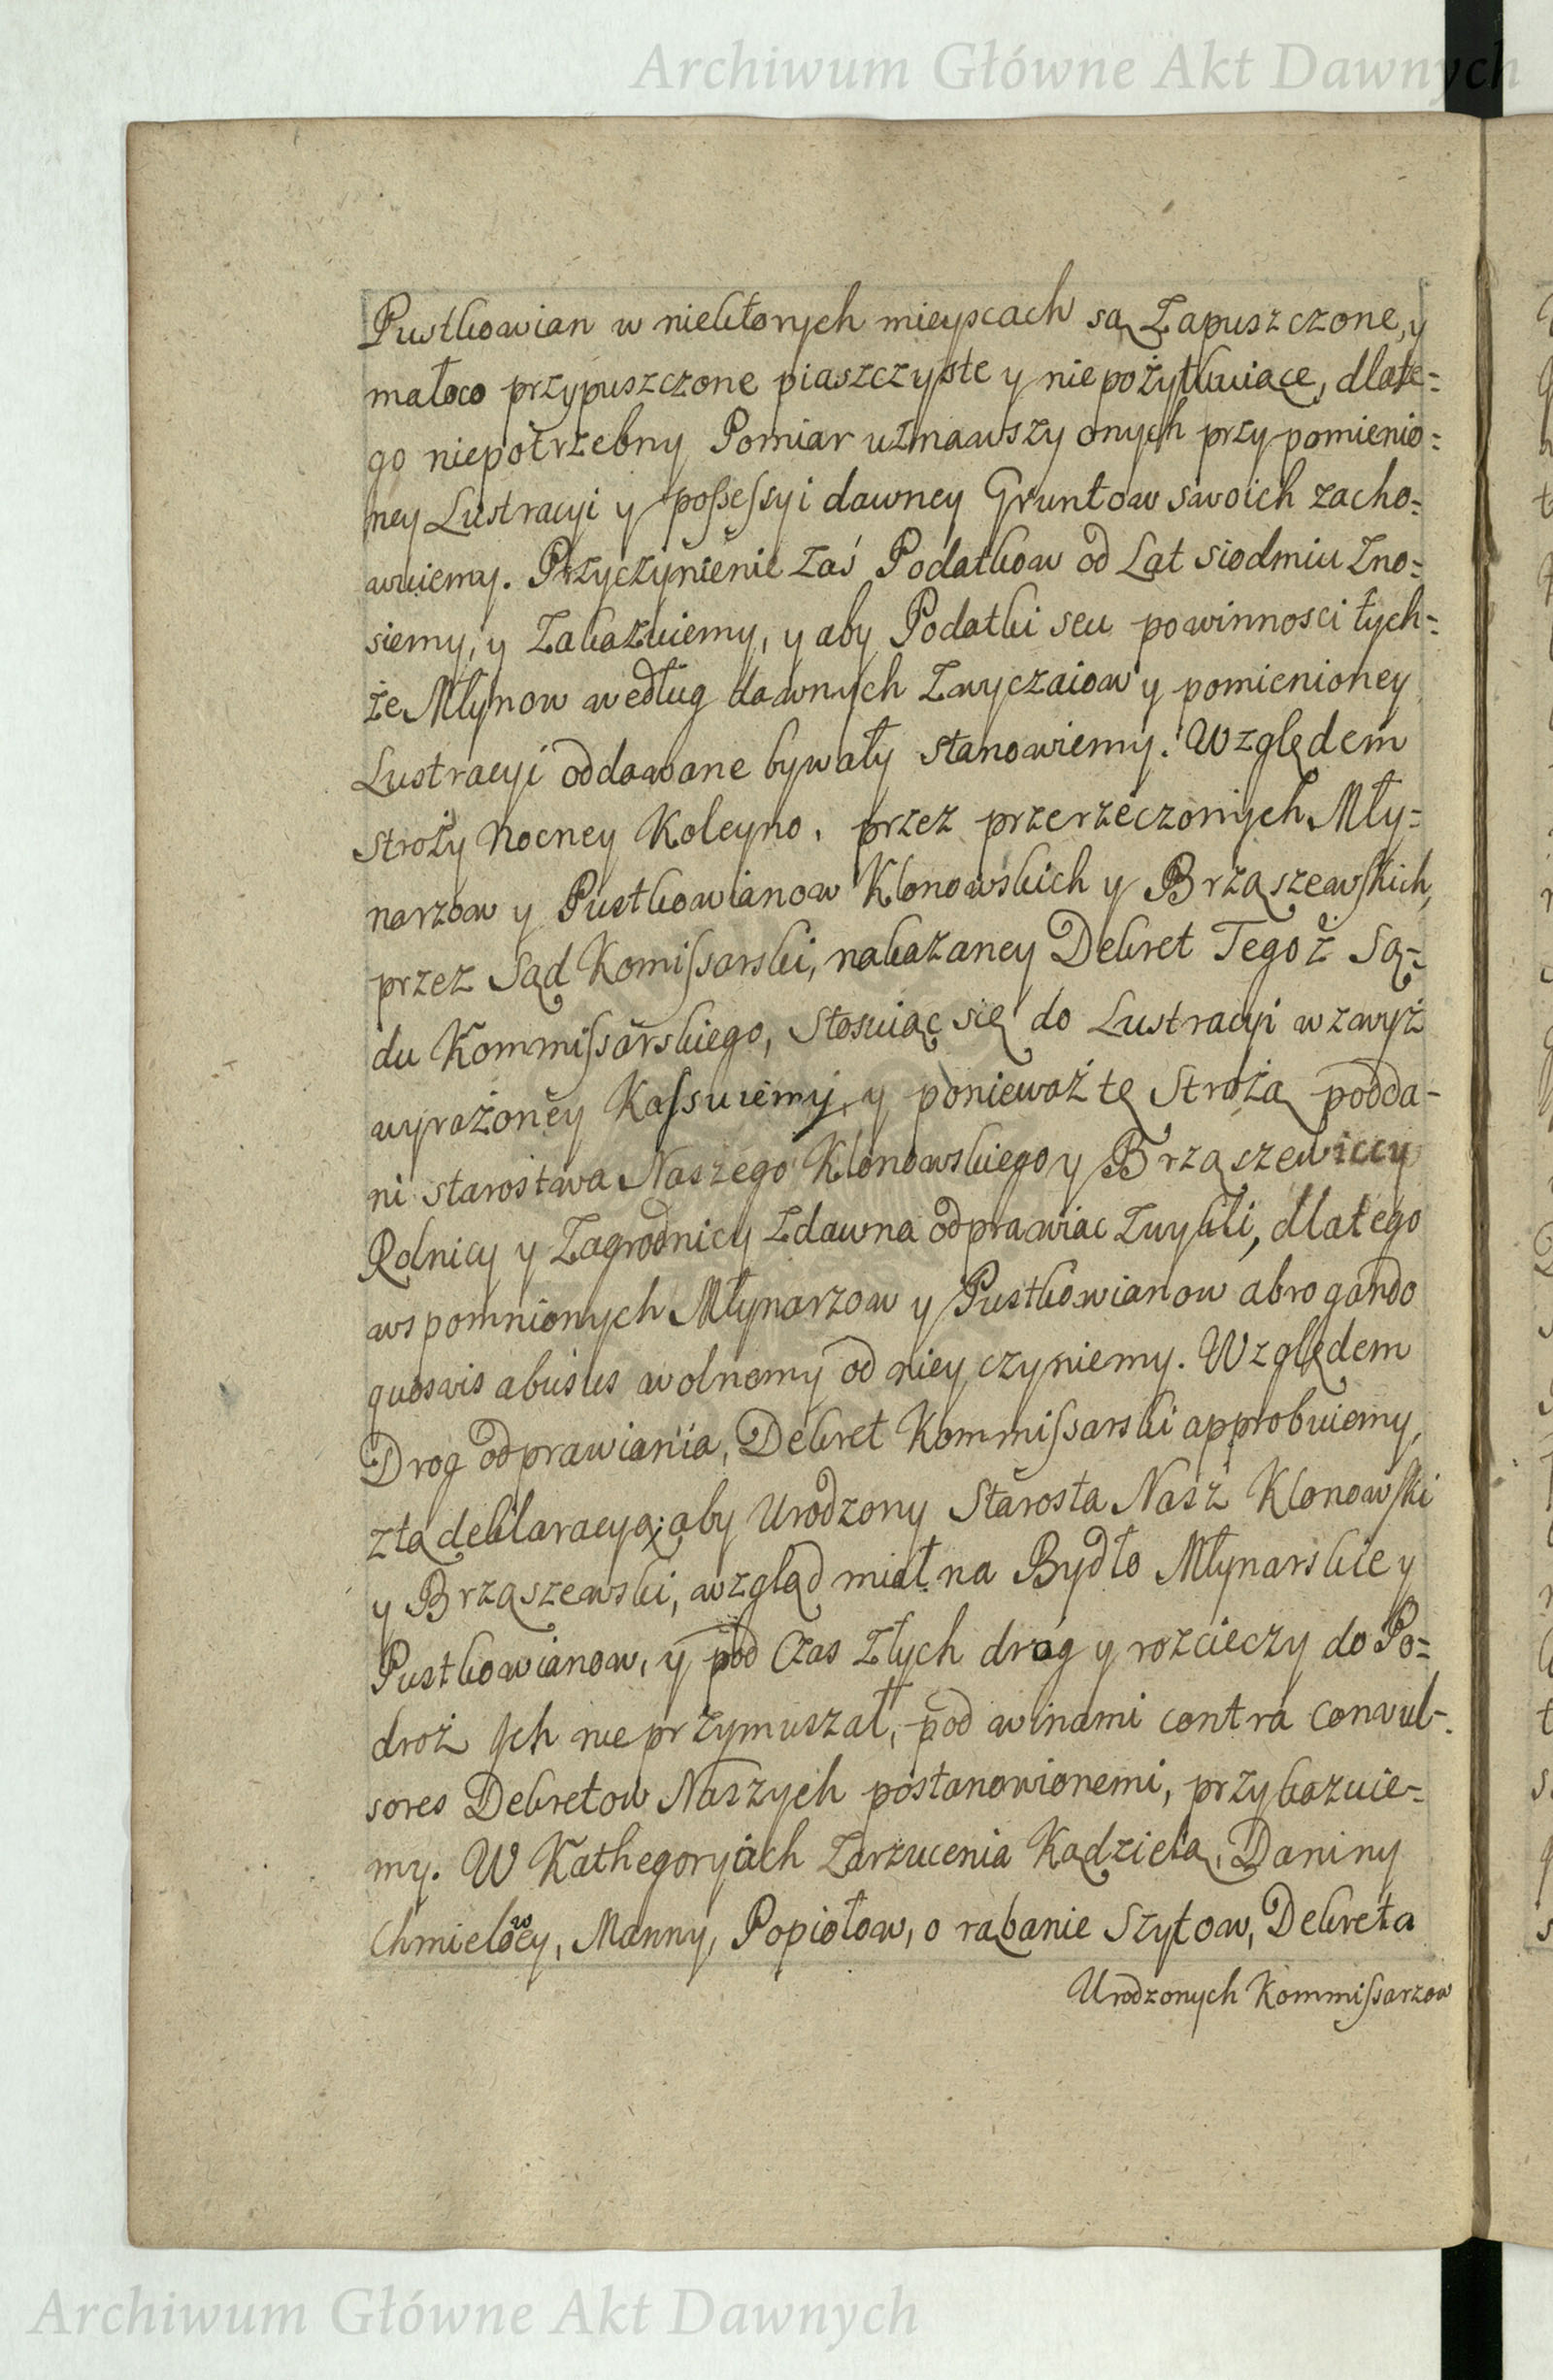 Archiwum Główne Akt Dawnych
Pustkowian w niektorych mieyscach są Zapuszczone, y
małoco przypuszczone piaszczyste y niepożytkuiące, dlate=
go niepotrzebny Pomiar uznawszy onych przy pomienio=
ney Lustracyi y possessyi dawney Gruntow swoich zacho=
wuiemy. Przyczynienie zaś Podatkow od Lat siodmiu Zno=
siemy, y Zakazuiemy, y aby Podatki seu powinnosci tych=
że Młynow według dawnych Zwyczaiow y pomienioney
Lustracyi oddawane bywały stanowiemy. Względem
stroży Nocney Koleyno, przez przerzeczonych Mły=
narzow y Pustkowianow Klonowskich y Brząszewskich,
przez Sąd Komissarski, nakazaney Dekret Tegoż Są=
du Kommissarskiego, stosuiąc się do Lustracyi wzwyż
wyrażoney Kassuiemy, y ponieważ tę Strożą podda-
ni starostwa Naszego Klonowskiego y Brząszewiccy
Rolnicy y Zagrodnicy Zdawna odprawiac Zwykli, dlatego
wspomnionych Młynarzow y Pustkowianow abrogando
quosvis abusus wolnemy od niey czyniemy. Względem
Drog odprawiania, Dekret Kommissarski approbuiemy,
ztą deklaracyą; aby Urodzony Starosta Nasz Klonowski
y Brząszewski, wzgląd miał na Bydło Młynarskie y
Pustkowianow, y pod Czas Złych drog y rozcieczy do Po=
droż Ych nieprzymuszał, pod winami contra convul-
sores Dekretow Naszych postanowionemi, przykazuie=
my. W Kathegoryach Zarzucenia Kądziela, Daniny
Chmielowey, Manny, Popiołow, o rąbanie Szytow, Dekreta
Urodzonych Kommissarzow
Archiwum Główne Akt Dawnych